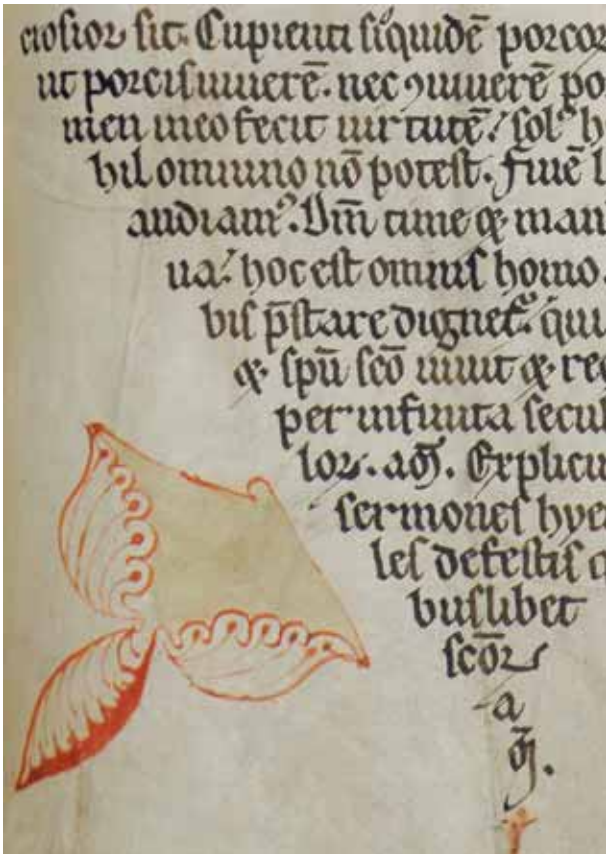 ciosior sit. Cupienti siquidē porcor
ut porcis uiuerē. nec ꝯuiuerē po
men meo fecit uirtutē. solꝰ h
hil omnino nō potest. Fiuē l
audiamꝰ. Dm̄ time ⁊ man
ua. hoc est omnis homo.
bis p̄stare dignetᷣ. qui
⁊ spū sc̄o uiuit ⁊ re
per infinita secul
loꝝ. am̄. Explicu
sermones hye
les de festis q
buslibet
sc̄oꝝ
a
m̄.